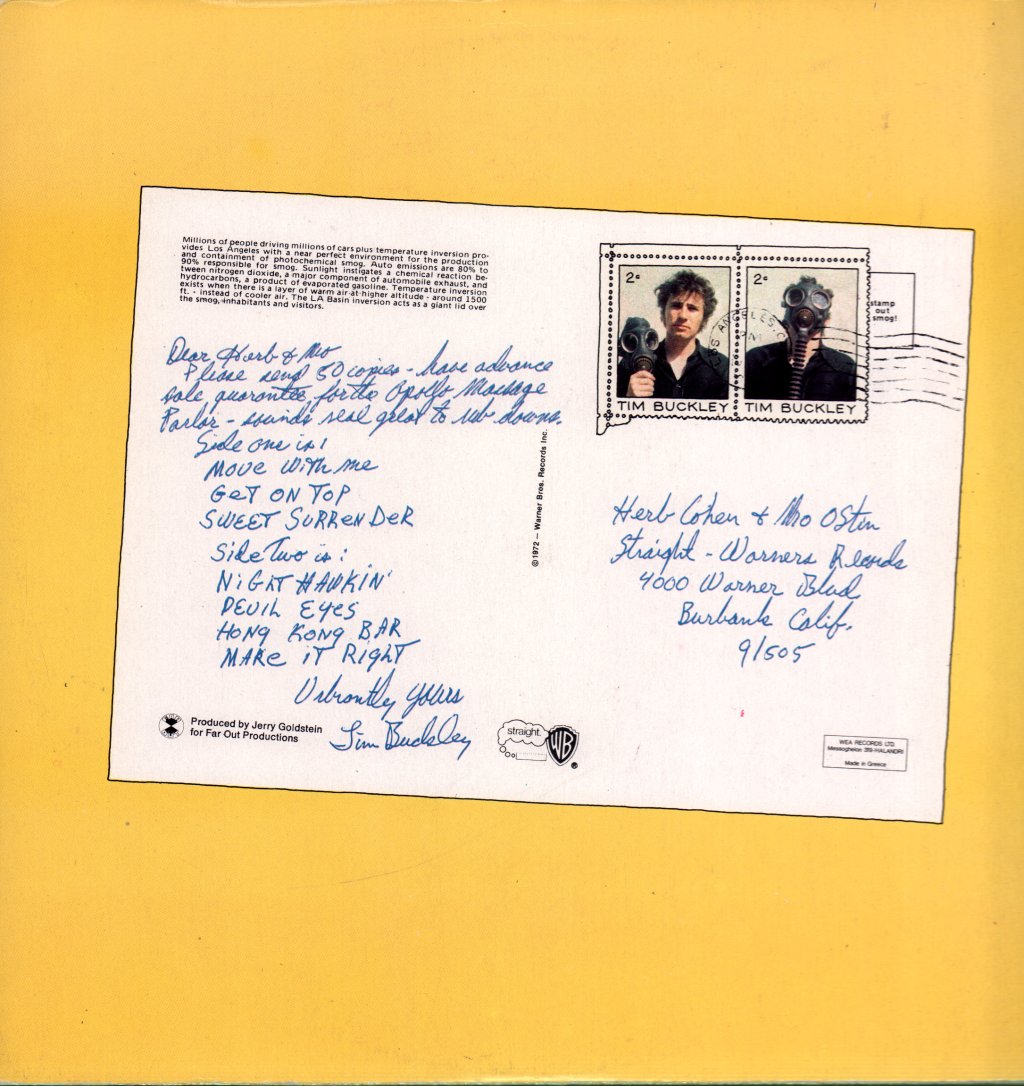 Millions of people driving millions of cars plus temperature inversion pro-
vides Los Angeles with a near perfect environment for the production
and containment of photochemical smog. Auto emissions are 80% to
90% responsible for smog. Sunlight instigates a chemical reaction be-
tween nitrogen dioxide, a major component of automobile exhaust, and
hydrocarbons, a product of evaporated gasoline. Temperature inversion
exists when there is a layer of warm air at higher altitude - around 1500
ft. - instead of cooler air. The LA Basin inversion acts as a giant lid over
the smog, inhabitants and visitors.
Dear Herb & Mo
Please send 50 copies - have advance
sale guarantee for the Apollo Massage
Parlor - sounds real great to rub downs.
Side one is:
MOVE WITH ME
GET ON TOP
SWEET SURRENDER
Side Two is:
NIGHT HAWKIN'
DEVIL EYES
HONG KONG BAR
MAKE IT RIGHT
Vibrantly yours
Tim Buckley
Produced by Jerry Goldstein
for Far Out Productions
straight.
WB
®
©1972 — Warner Bros. Records Inc.
2¢
2¢
LOS ANGELES, C
TIM BUCKLEY
TIM BUCKLEY
stamp
out
smog!
Herb Cohen & Mo Ostin
Straight - Warners Records
4000 Warner Blvd
Burbank Calif.
91505
WEA RECORDS LTD.
Messoghelon 319-HALANDRI
Made in Greece